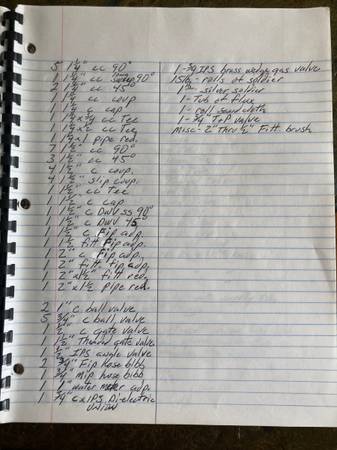 5 1¼" cc 90°
1 1¼" cc 90°
2 1¼" cc 45°
1 1¼ cc coup
1 1¼ c cap
1 1¼ x ¾ cc Tee
1 1¼ x ½ cc Tee
1 1¼ x 1 pipe red.
7 1½" cc 90°
3 1½" cc 45°
4 1½" c coup.
4 1½" slip coup.
1 1½" cc Tee
1 1½" c cap
1 1½" c DWV ss 90°
1 1½" c DWV 45°
1 1½" c Fip adp.
1 1½ fitt Fip adp.
1 2" c Fip adp.
1 2" fitt fip adp.
1 2" x 1½" fitt red.
1 2" x 1½ pipe red.
2 1" c ball valve
5 ¾" c ball valve
1 ½" c gate valve
1 1½" Thread gate valve
1 IPS angle valve
2 ¾" Fip hose bibb
1 ¾" Mip hose bibb
1 1" water meter adp.
1 ¾" c x IPS Di-electric
union
1-¾ IPS brass wedge gas valve
15lb- rolls of soldier
silver soldier
1-Tub of flux
1-roll sandcloth
1-¾" T&P valve
Misc- 2" Thru ½" Fitt. brush